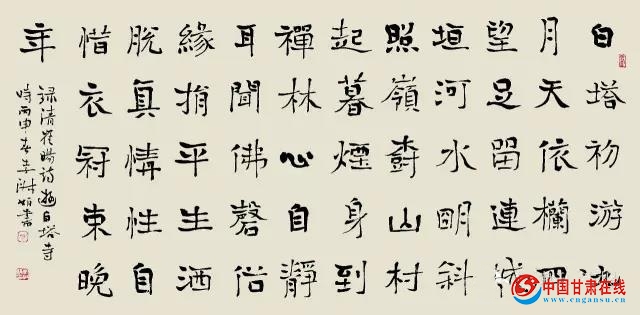 白塔初游
月天依欄四
望足留連城
垣河水明斜
照嶺樹山村
起暮煙身到
禪林心自靜
耳聞佛磬俗
緣捐平生洒
脫真情性自
惜衣冠束晚
年
錄清崔暘詩游白塔寺
時丙申書
中国甘肃在线
www.cngansu.cn